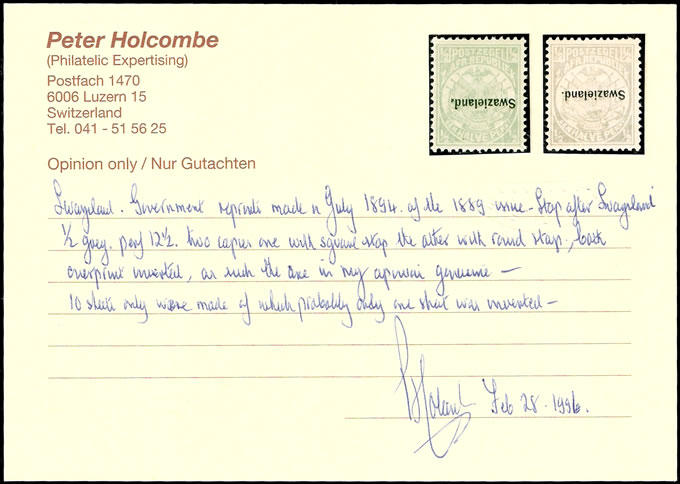 Peter Holcombe
(Philatelic Expertising)
Postfach 1470
6006 Luzern 15
Switzerland
Tel. 041 - 51 56 25
Opinion only / Nur Gutachten
POSTZEGEL
Swazieland.
POSTZEGEL
Swazieland.
Swazieland. Government reprints made in July 1894. of the 1889 issue - Stop after Swazieland
½ grey. perf 12½. two copies one with square stop the other with round stop., both
overprint inverted, as such they are in my opinion genuine -
10 sheets only were made of which probably only one sheet was inverted -
Feb 28. 1996.